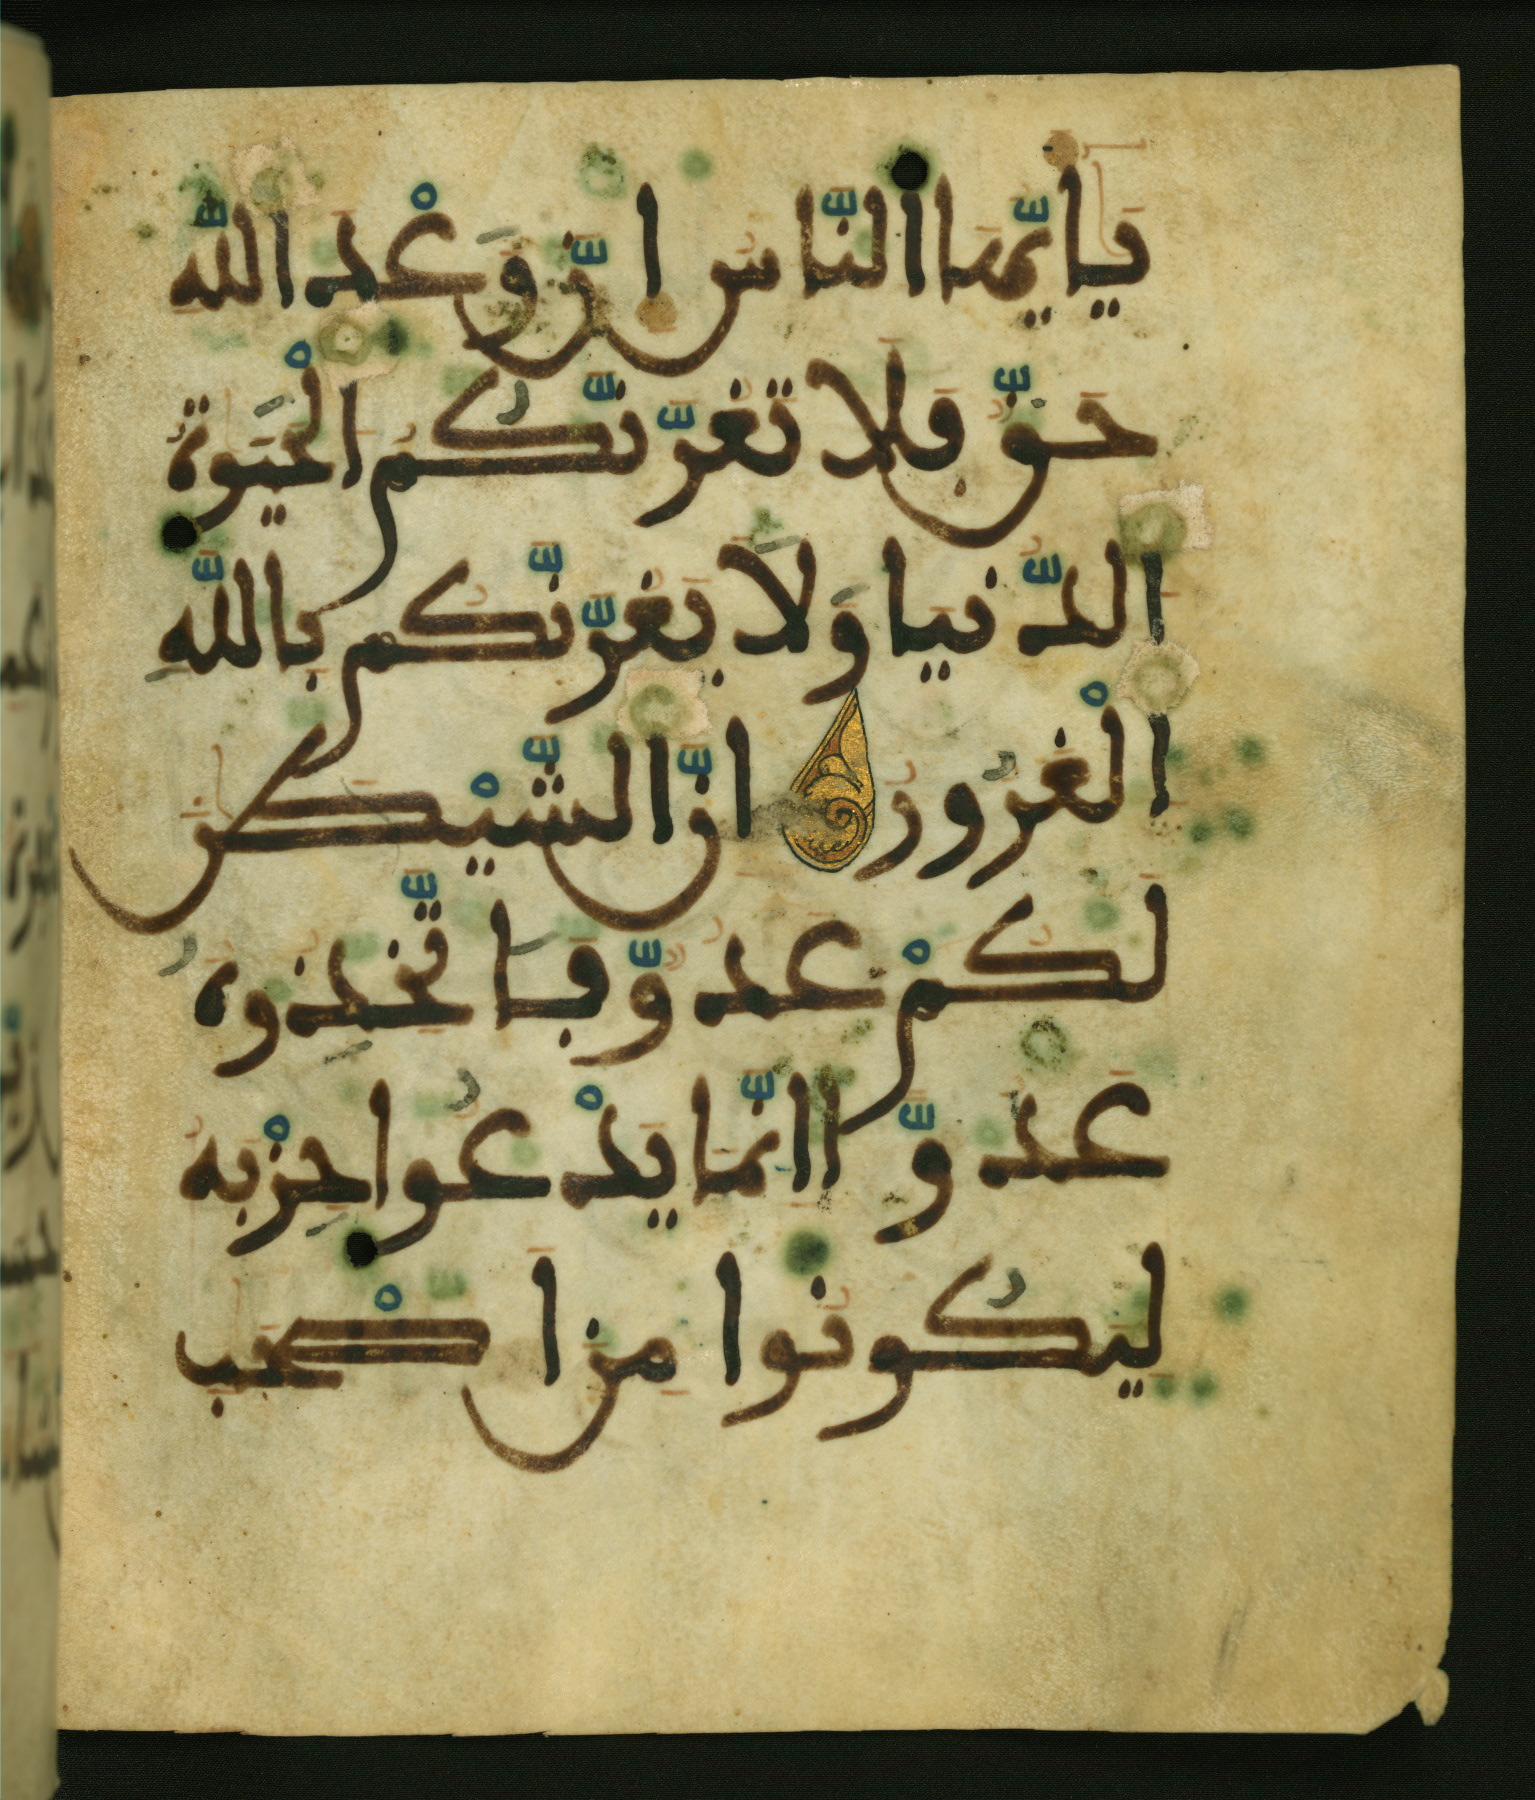 يَٰأَيُّهَا اَ۬لنَّاسُ إِنَّ وَعْدَ اَ۬للَّهِ
حَقٌّ فَلَا تَغُرَّنَّكُمُ اُ۬لْحَيَوٰةُ
اُ۬لدُّنْيَا وَلَا يَغُرَّنَّكُم بِاللَّهِ
اِ۬لْغَرُورُ إِنَّ اَ۬لشَّيْطَٰنَ
لَكُمْ عَدُوٌّ فَاتَّخِذُوهُ
عَدُوًّا اِنَّمَا يَدْعُوا حِزْبَهُ
لِيَكُونُوا مِنَ اَصْحَٰبِ